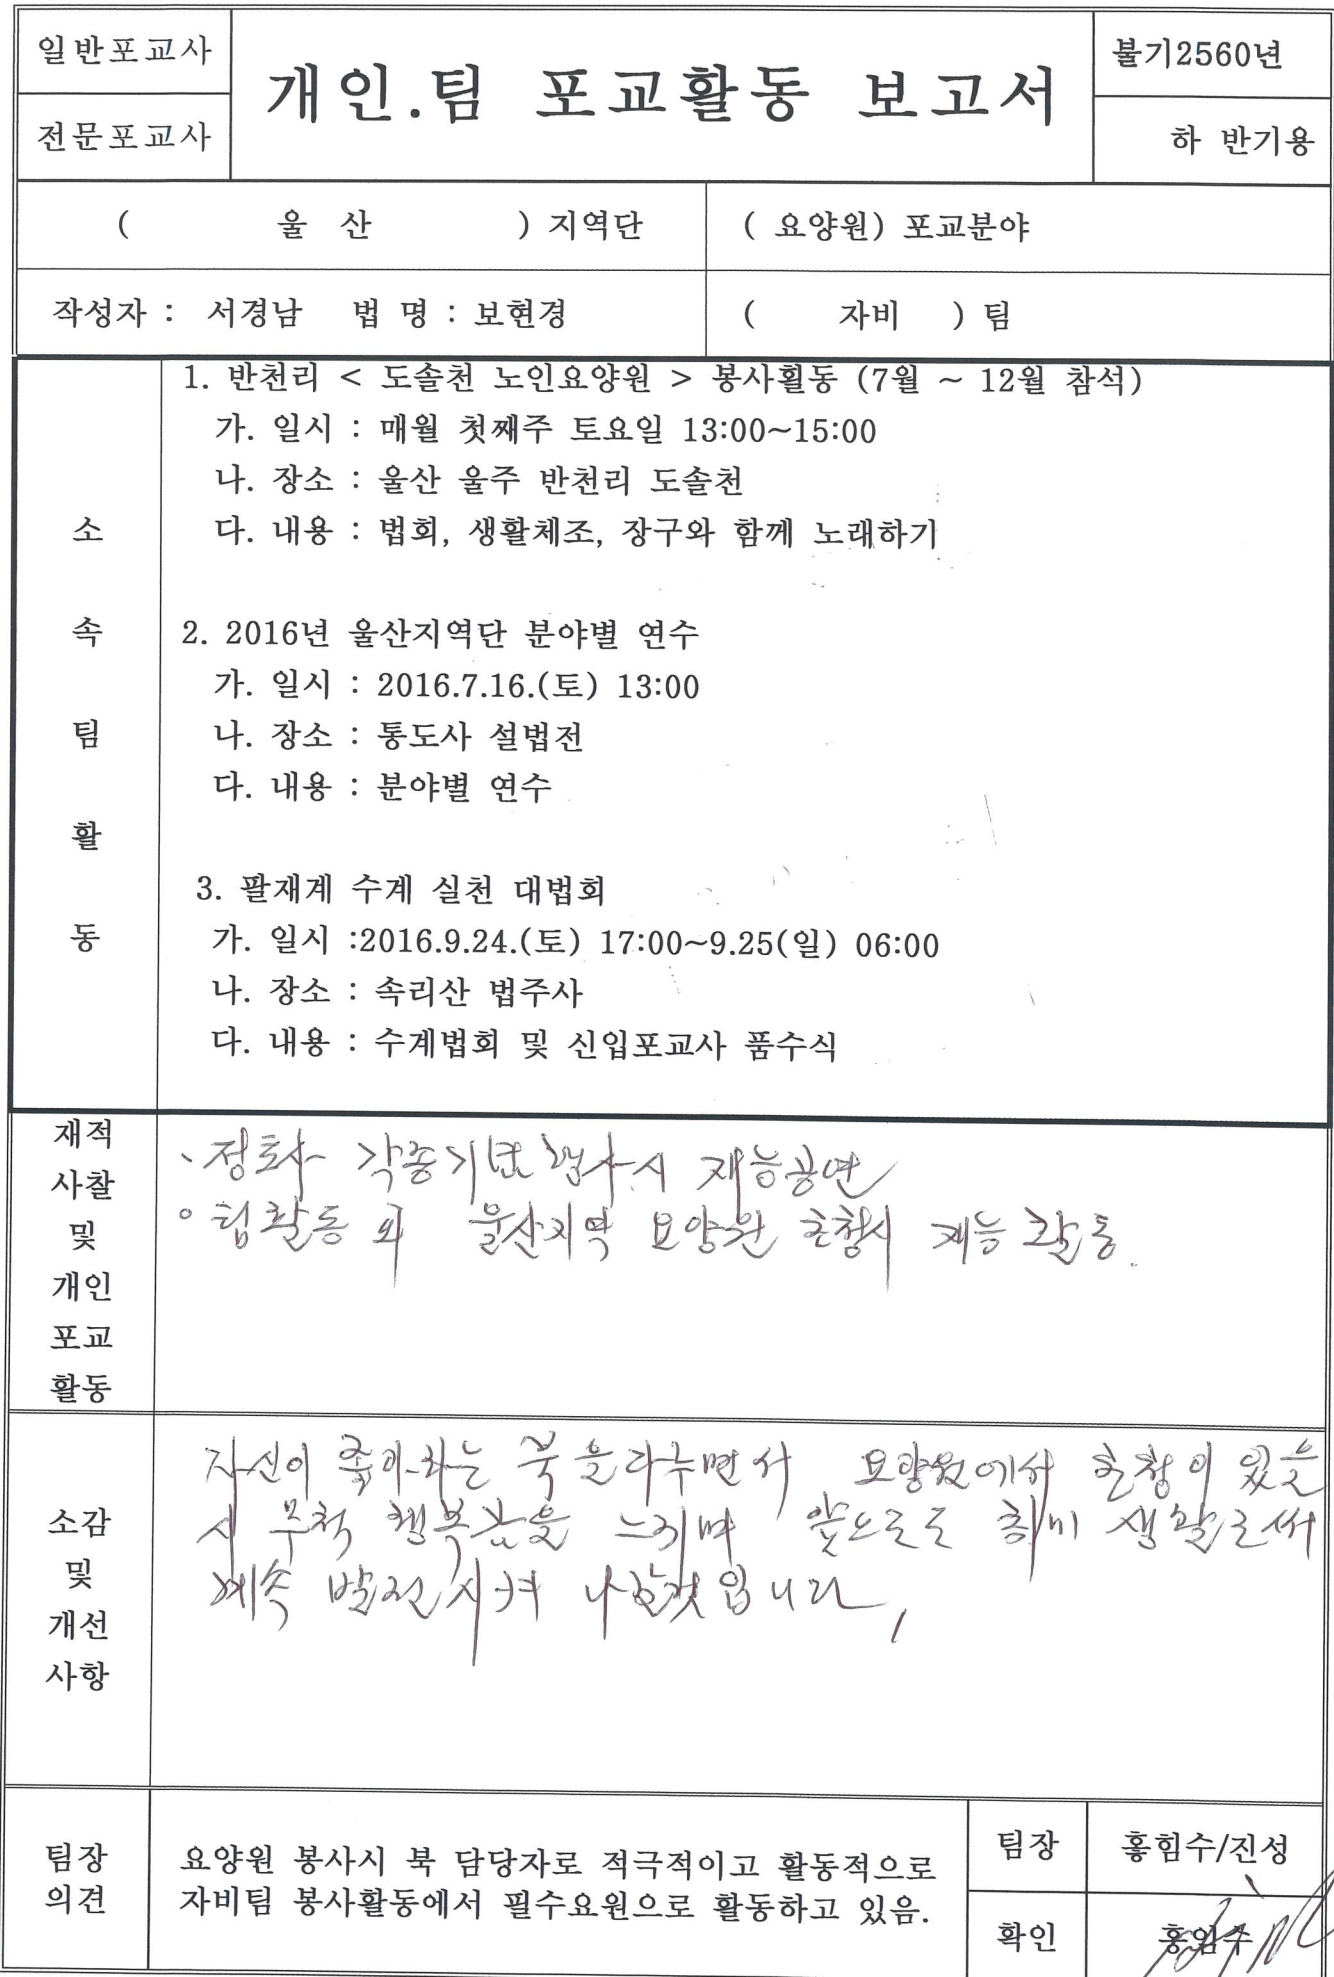 일반포교사
전문포교사
개인.팀 포교활동 보고서
불기2560년
하 반기용
( 울 산 ) 지역단
( 요양원) 포교분야
작성자 : 서경남 법 명 : 보현경
( 자비 ) 팀
소 속 팀 활 동
1. 반천리 < 도솔천 노인요양원 > 봉사횔동 (7월 ~ 12월 참석)
가. 일시 : 매월 첫째주 토요일 13:00~15:00
나. 장소 : 울산 울주 반천리 도솔천
다. 내용 : 법회, 생활체조, 장구와 함께 노래하기
2. 2016년 울산지역단 분야별 연수
가. 일시 : 2016.7.16.(토) 13:00
나. 장소 : 통도사 설법전
다. 내용 : 분야별 연수
3. 팔재계 수계 실천 대법회
가. 일시 :2016.9.24.(토) 17:00~9.25(일) 06:00
나. 장소 : 속리산 법주사
다. 내용 : 수계법회 및 신입포교사 품수식
재적
사찰
및
개인
포교
활동
、정토사 각종 행사시 재능공연
○ 팀활동 외 울산지역 요양원 초청시 재능활동.
소감
및
개선
사항
자신이 좋아하는 북을 다누면서 요양원에서 초청이 있을
시 무척 행복감을 느끼며 앞으로도 취미 생활로써
계속 발전시켜 나갈것입니다,
팀장
의견
요양원 봉사시 북 담당자로 적극적이고 활동적으로
자비팀 봉사활동에서 필수요원으로 활동하고 있음.
팀장
홍힘수/진성
확인